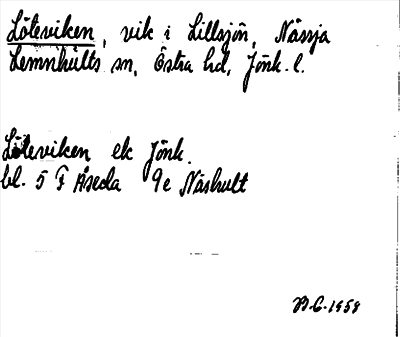 Löteviken, vik i Lillsjön, Nässja
Lemnhults sn, Östra hd, Jönk. l.
Löteviken ek Jönk.
bl. 5 F Åseda 9e Näshult
B.G. 1959